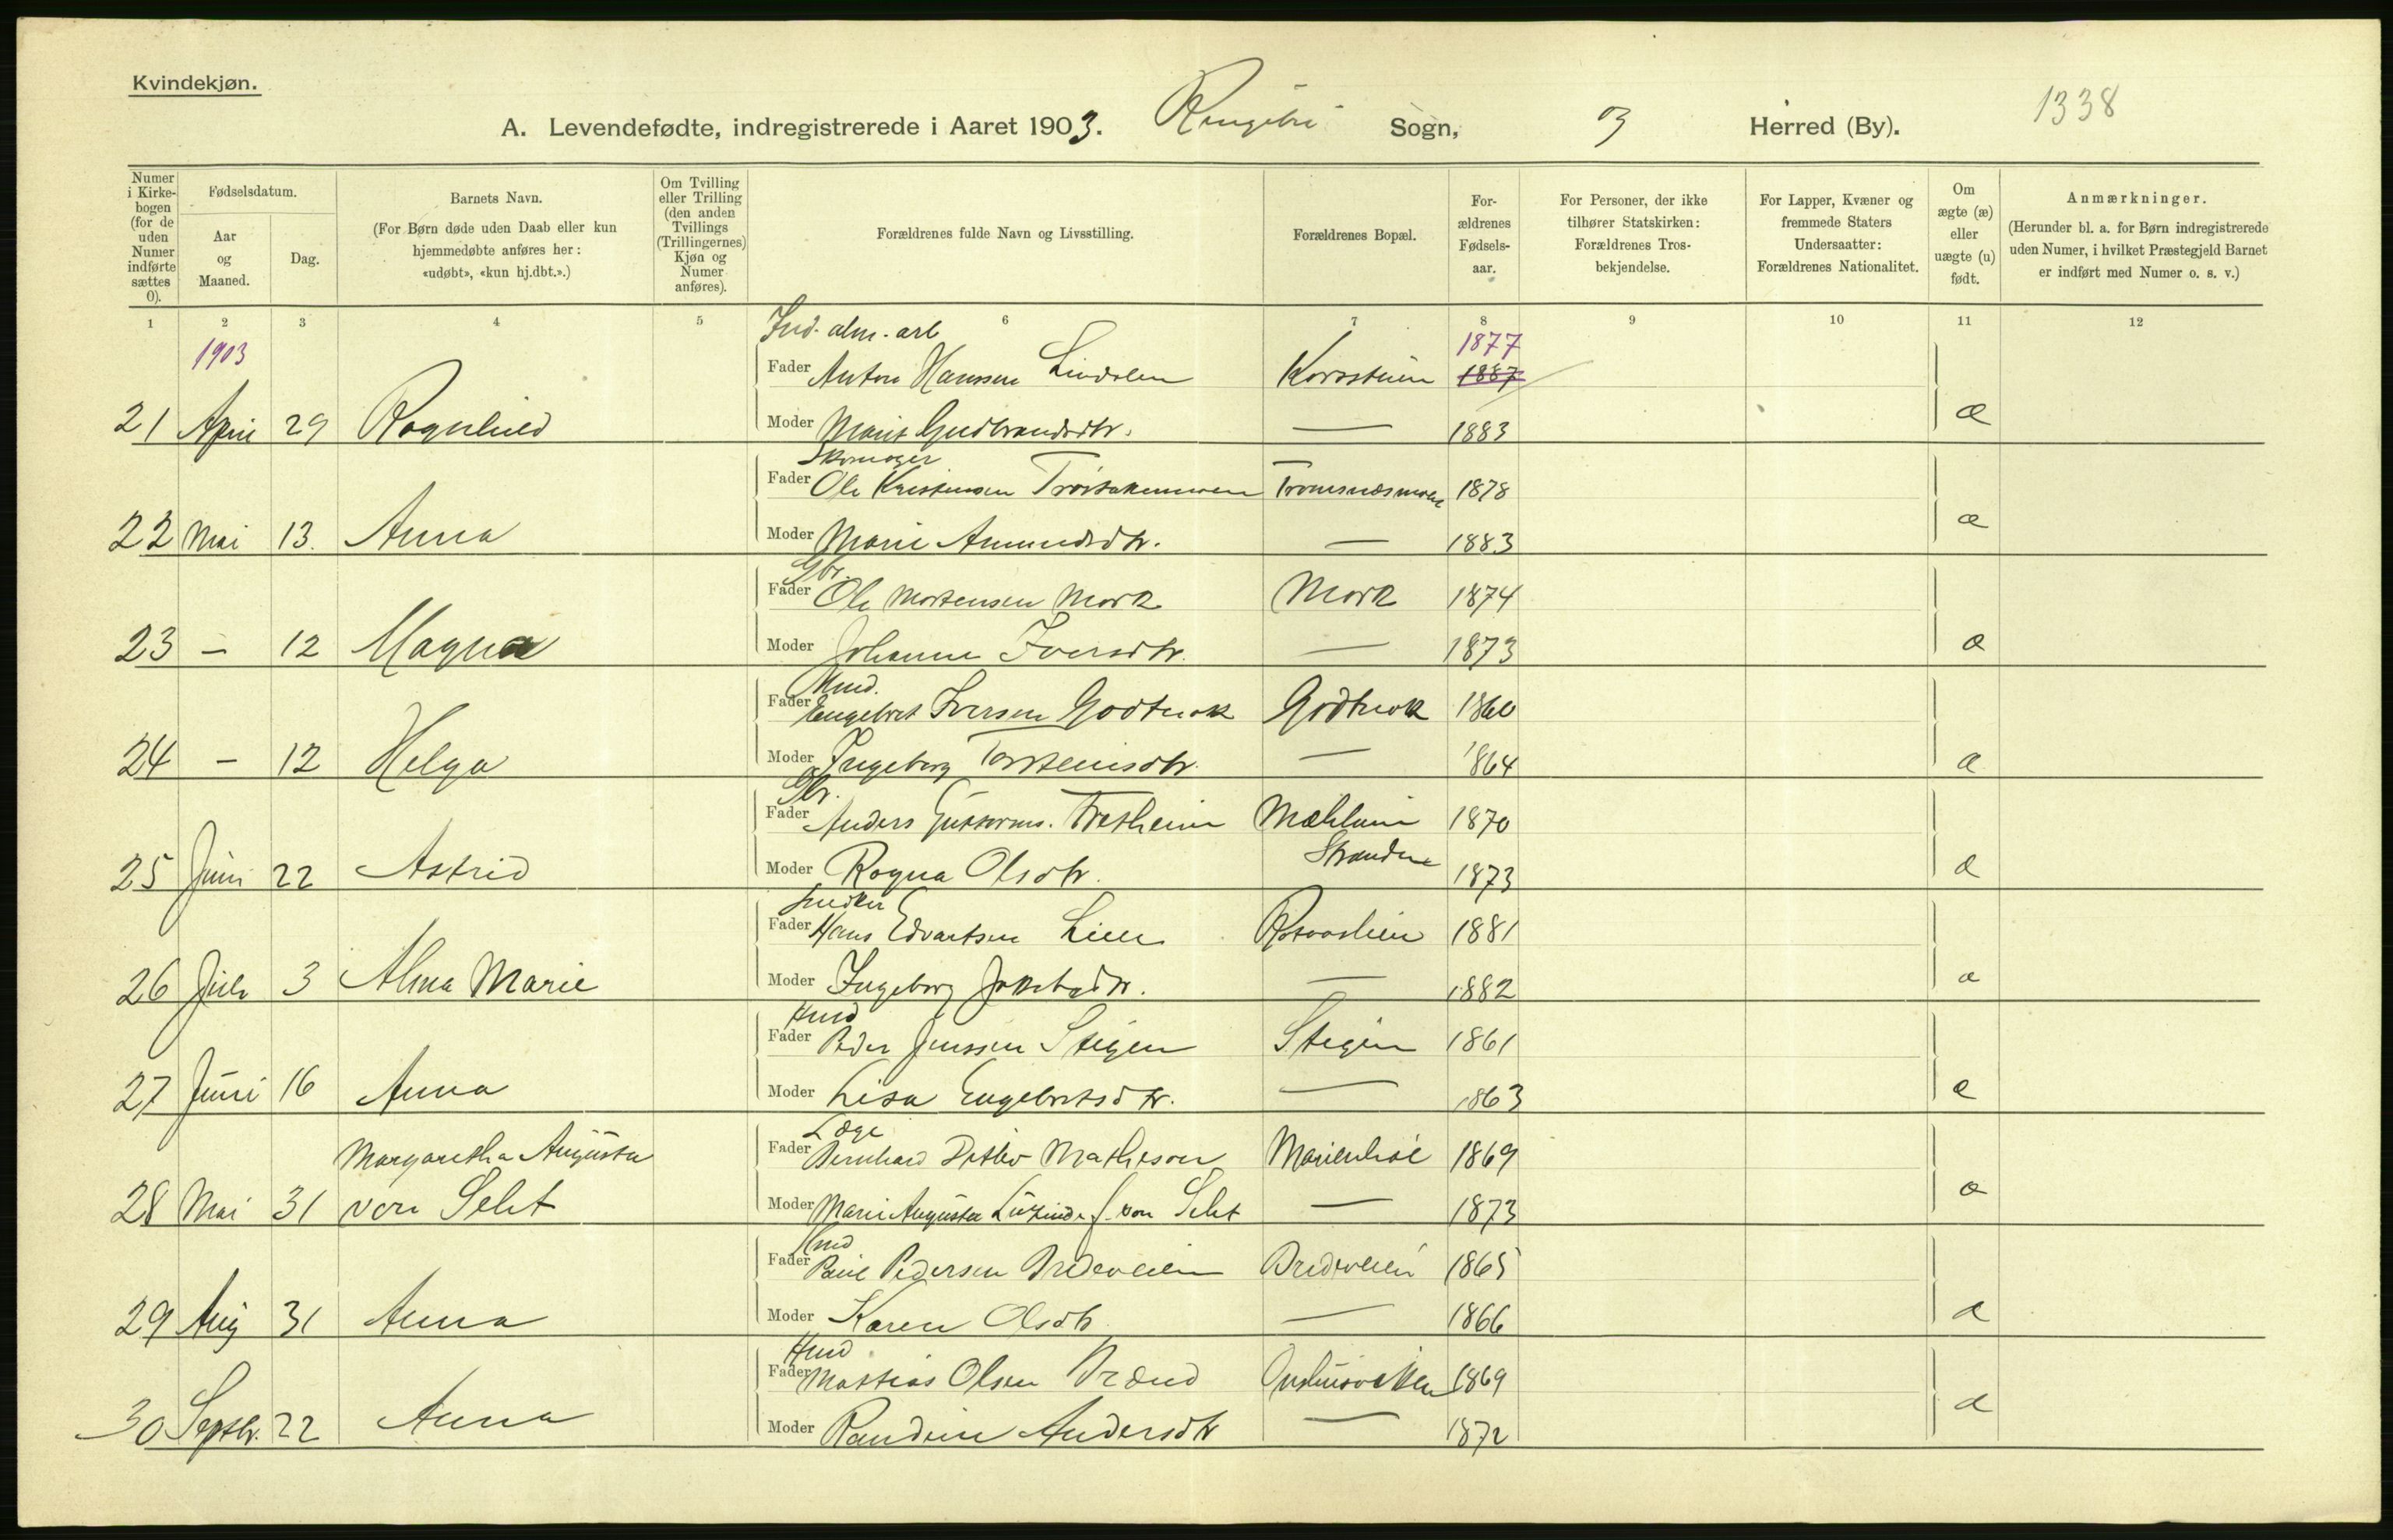 Kvindekjøn.
A. Levendefødte, indregistrerede i Aaret 1903. Ringebu Sogn, Herred (By).
1338
Numer i Kirkebogen (for de uden Numer indførte sættes 0).
Fødselsdatum.
Aar og Maaned.
Dag.
Barnets Navn.
(For Børn døde uden Daab eller kun hjemmedøbte anføres her: «udøbt», «kun hj.dbt.».)
Om Tvilling eller Trilling (den anden Tvillings (Trillingernes) Kjøn og Numer anføres).
Forældrenes fulde Navn og Livsstilling.
Forældrenes Bopæl.
Forældrenes Fødselsaar.
For Personer, der ikke tilhører Statskirken: Forældrenes Trosbekjendelse.
For Lapper, Kvæner og fremmede Staters Undersaatter: Forældrenes Nationalitet.
Om ægte (æ) eller uægte (u) født.
Anmærkninger.
(Herunder bl. a. for Børn indregistrerede uden Numer, i hvilket Præstegjeld Barnet er indført med Numer o. s. v.)
1 2 3 4 5 6 7 8 9 10 11 12
1903
Ind. alm. arb
1877
Fader Anton Hanssen Lindalen Korsstuen 1887
21 April 29 Ragnhild Moder Marit Gudbrandsdtr. — 1883 æ
Skomager
Fader Ole Kristensen Tromsnæsmoen 1878
22 Mai 13. Anna Moder Marie Amundsdtr. — 1883 æ
Gbr.
Fader Ole Mortensen Mork Mork 1874
23 — 12 Magna Moder Johanne Iversdtr. — 1873 æ
Hmd.
Fader Engebret Iversen 1860
24 — 12 Helga Moder Ingeborg Torsteinsdtr. — 1864 æ
Gbr.
Fader Anders Guttorms. Tretheim Mæhlum 1870
Stranden
25 Juni 22 Astrid Moder Ragna Olsdtr. 1873 æ
Snedker
Fader Hans Edvartsen Lien 1881
26 Juli 3 Alma Marie Moder Ingeborg Jakobsdtr. — 1882 æ
Hmd
Fader Peder Jenssen Stigen Stigen 1861
27 Juni 16 Anna Moder Lisa Engebretsdtr. — 1863 æ
Læge
Margaretha Augusta Fader Bernhard Detlev Matheson Marienhøi 1869
28 Mai 31 von Moder Marie Augusta f. von — 1873 æ
Hmd
Fader Paul Pedersen Bredeveien Bredeveien 1865
29 Aug 31 Anna Moder Karen Olsdtr. — 1866 æ
Hmd
Fader Mathias Olsen Brænd 1869
30 Septbr. 22 Anna Moder Randine Andersdtr — 1872 æ